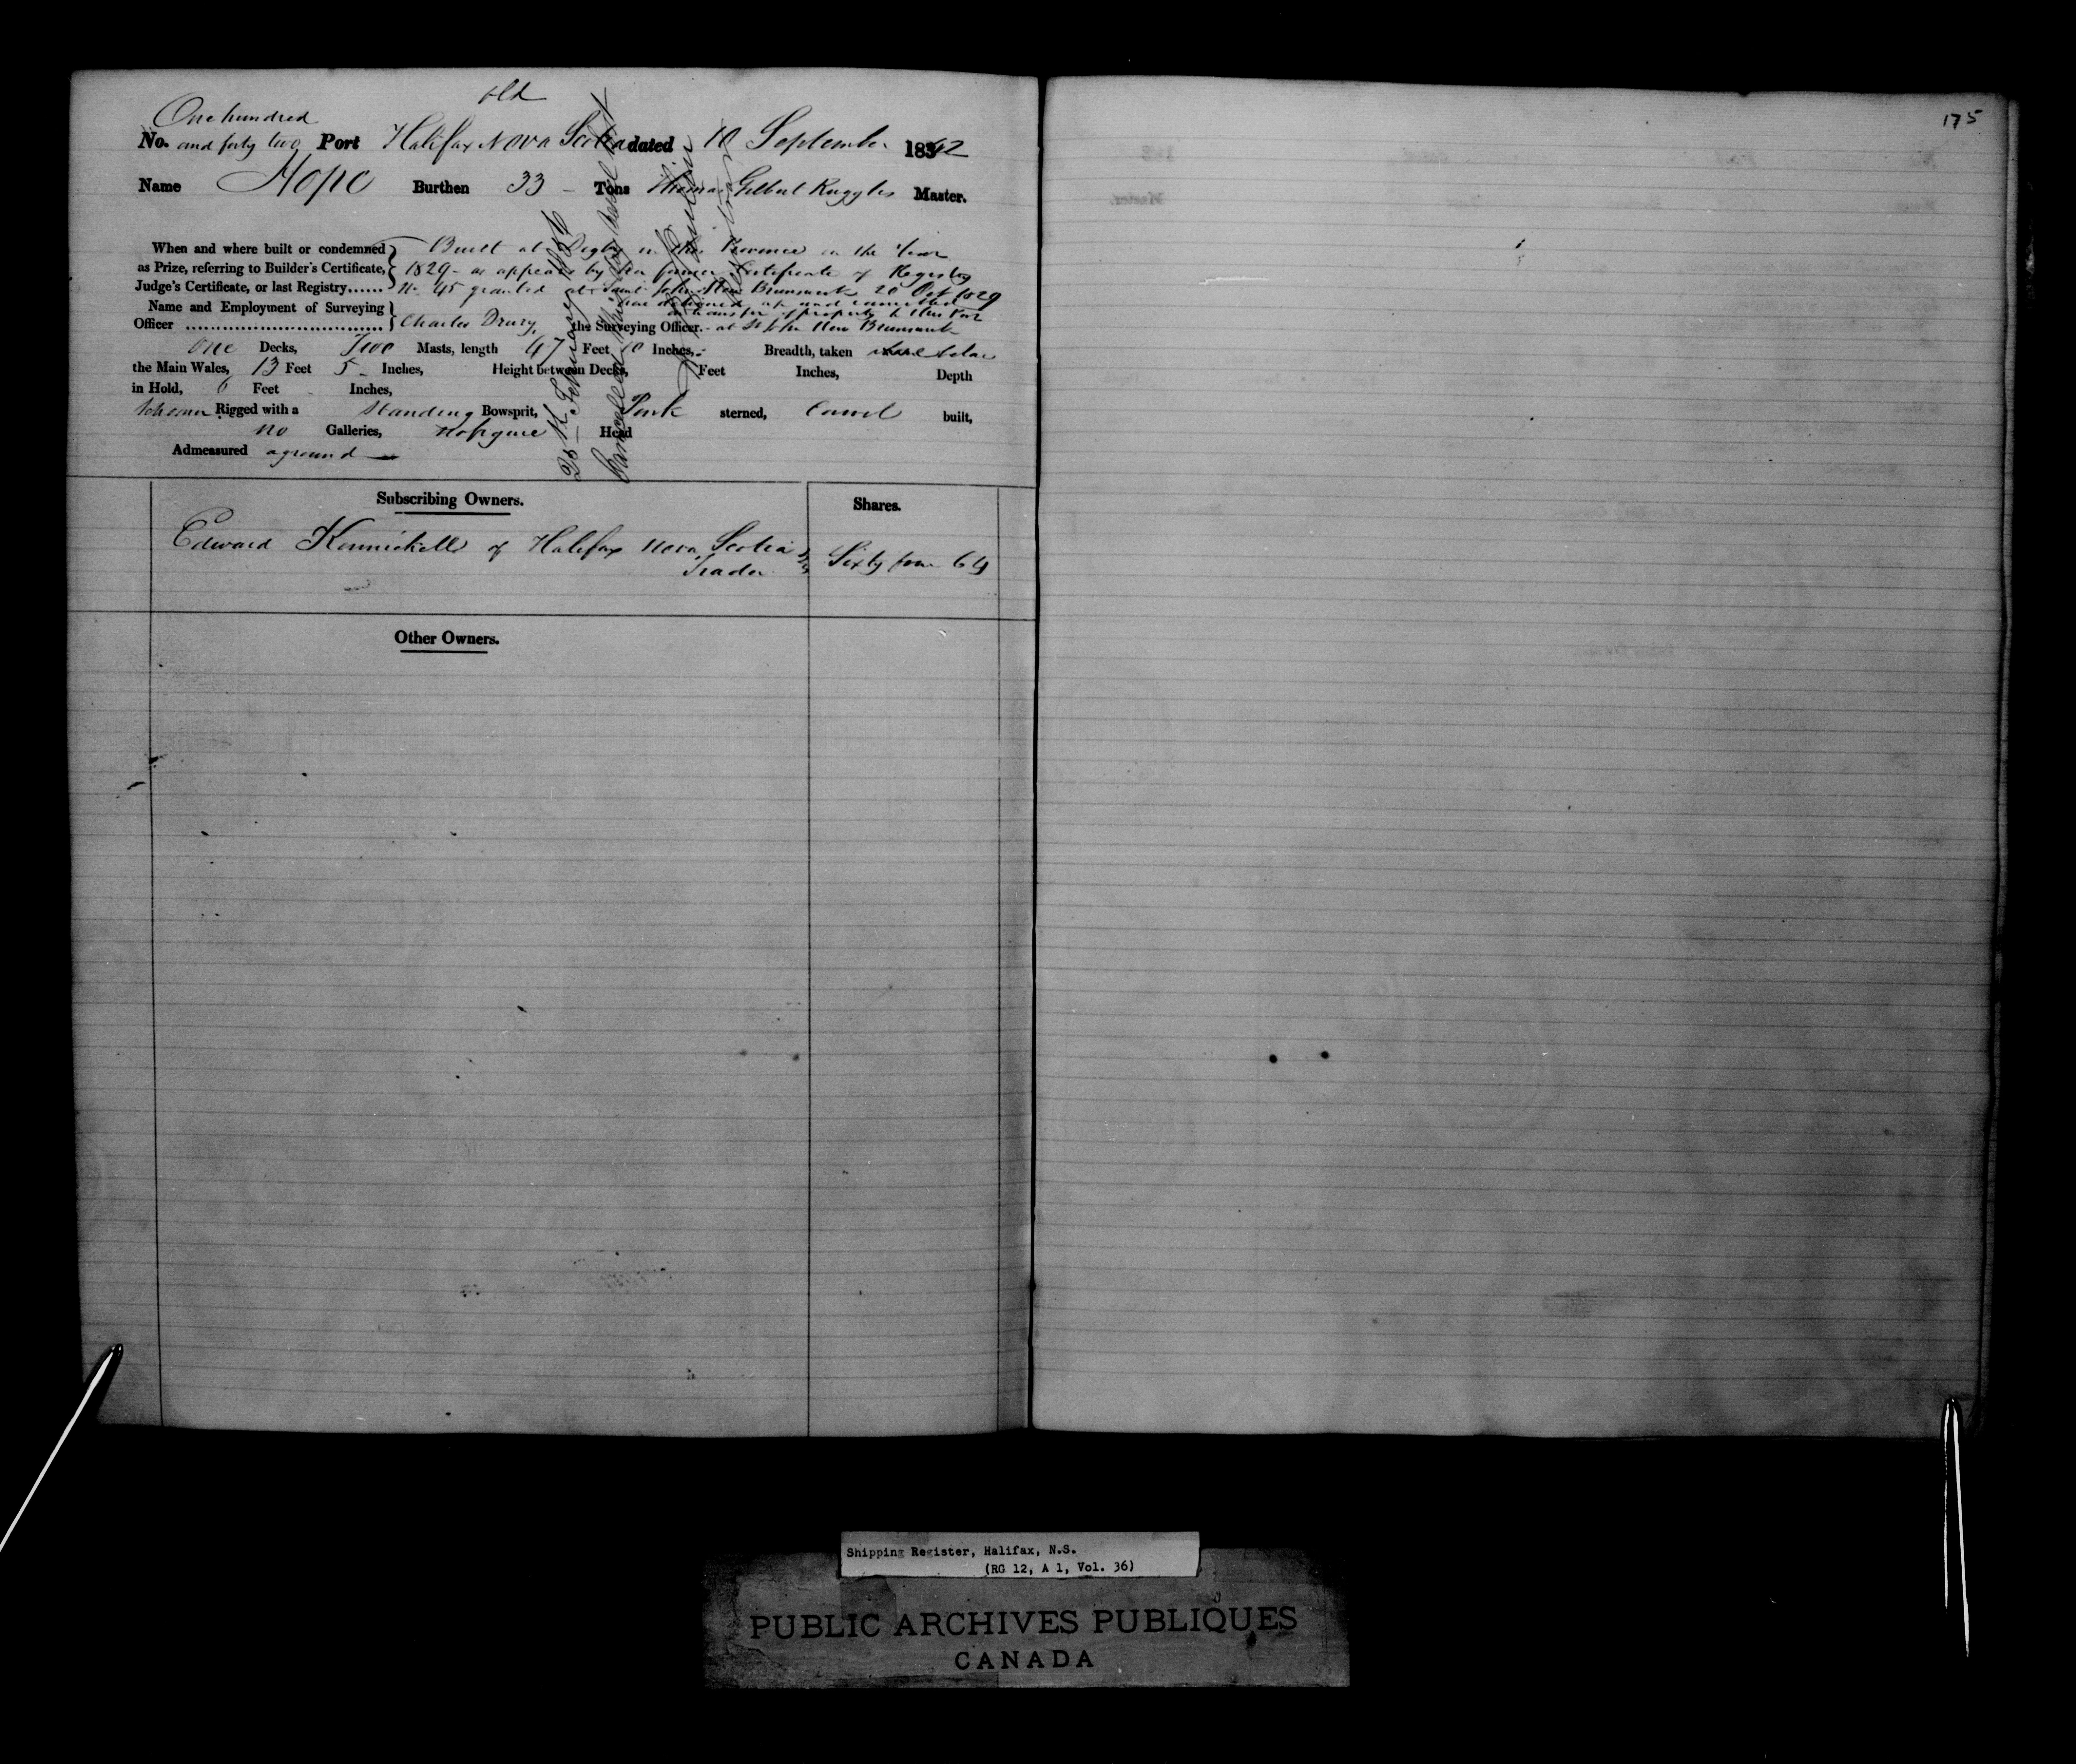 old
One hundred
No. and forty two Port Halifax Nova Scotia dated 10 September 1842
Name Hope Burthen 33 - Tons Thomas Gilbert Ruggles Master.
When and where built or condemned Built at Digby in this Province in the Year
as Prize, referring to Builder's Certificate, 1829 - as appears by her former Certificate of Registry
Judge's Certificate, or last Registry...... No 45 granted at Saint John New Brunswick 20 Oct 1829
now delivered up and cancelled
Name and Employment of Surveying transfer of property to this Port
Officer ................................ Charles Drury, the Surveying Officer. - at St John New Brunswick
One Decks, Two Masts, length 47 Feet 10 Inches, Breadth, taken below
the Main Wales, 13 Feet 5 - Inches, Height between Decks, Feet Inches, Depth
in Hold, 6 Feet - Inches,
Schooner Rigged with a Standing Bowsprit, Pink sterned, Carvel built,
no Galleries, no figure Head
Admeasured aground
February
Cancelled
Subscribing Owners.
Shares.
Edward of Halifax Nova Scotia
Trader
Sixty four 64
Other Owners.
175
Shipping Register, Halifax, N.S.
(RG 12, A 1, Vol. 36)
PUBLIC ARCHIVES PUBLIQUES
CANADA